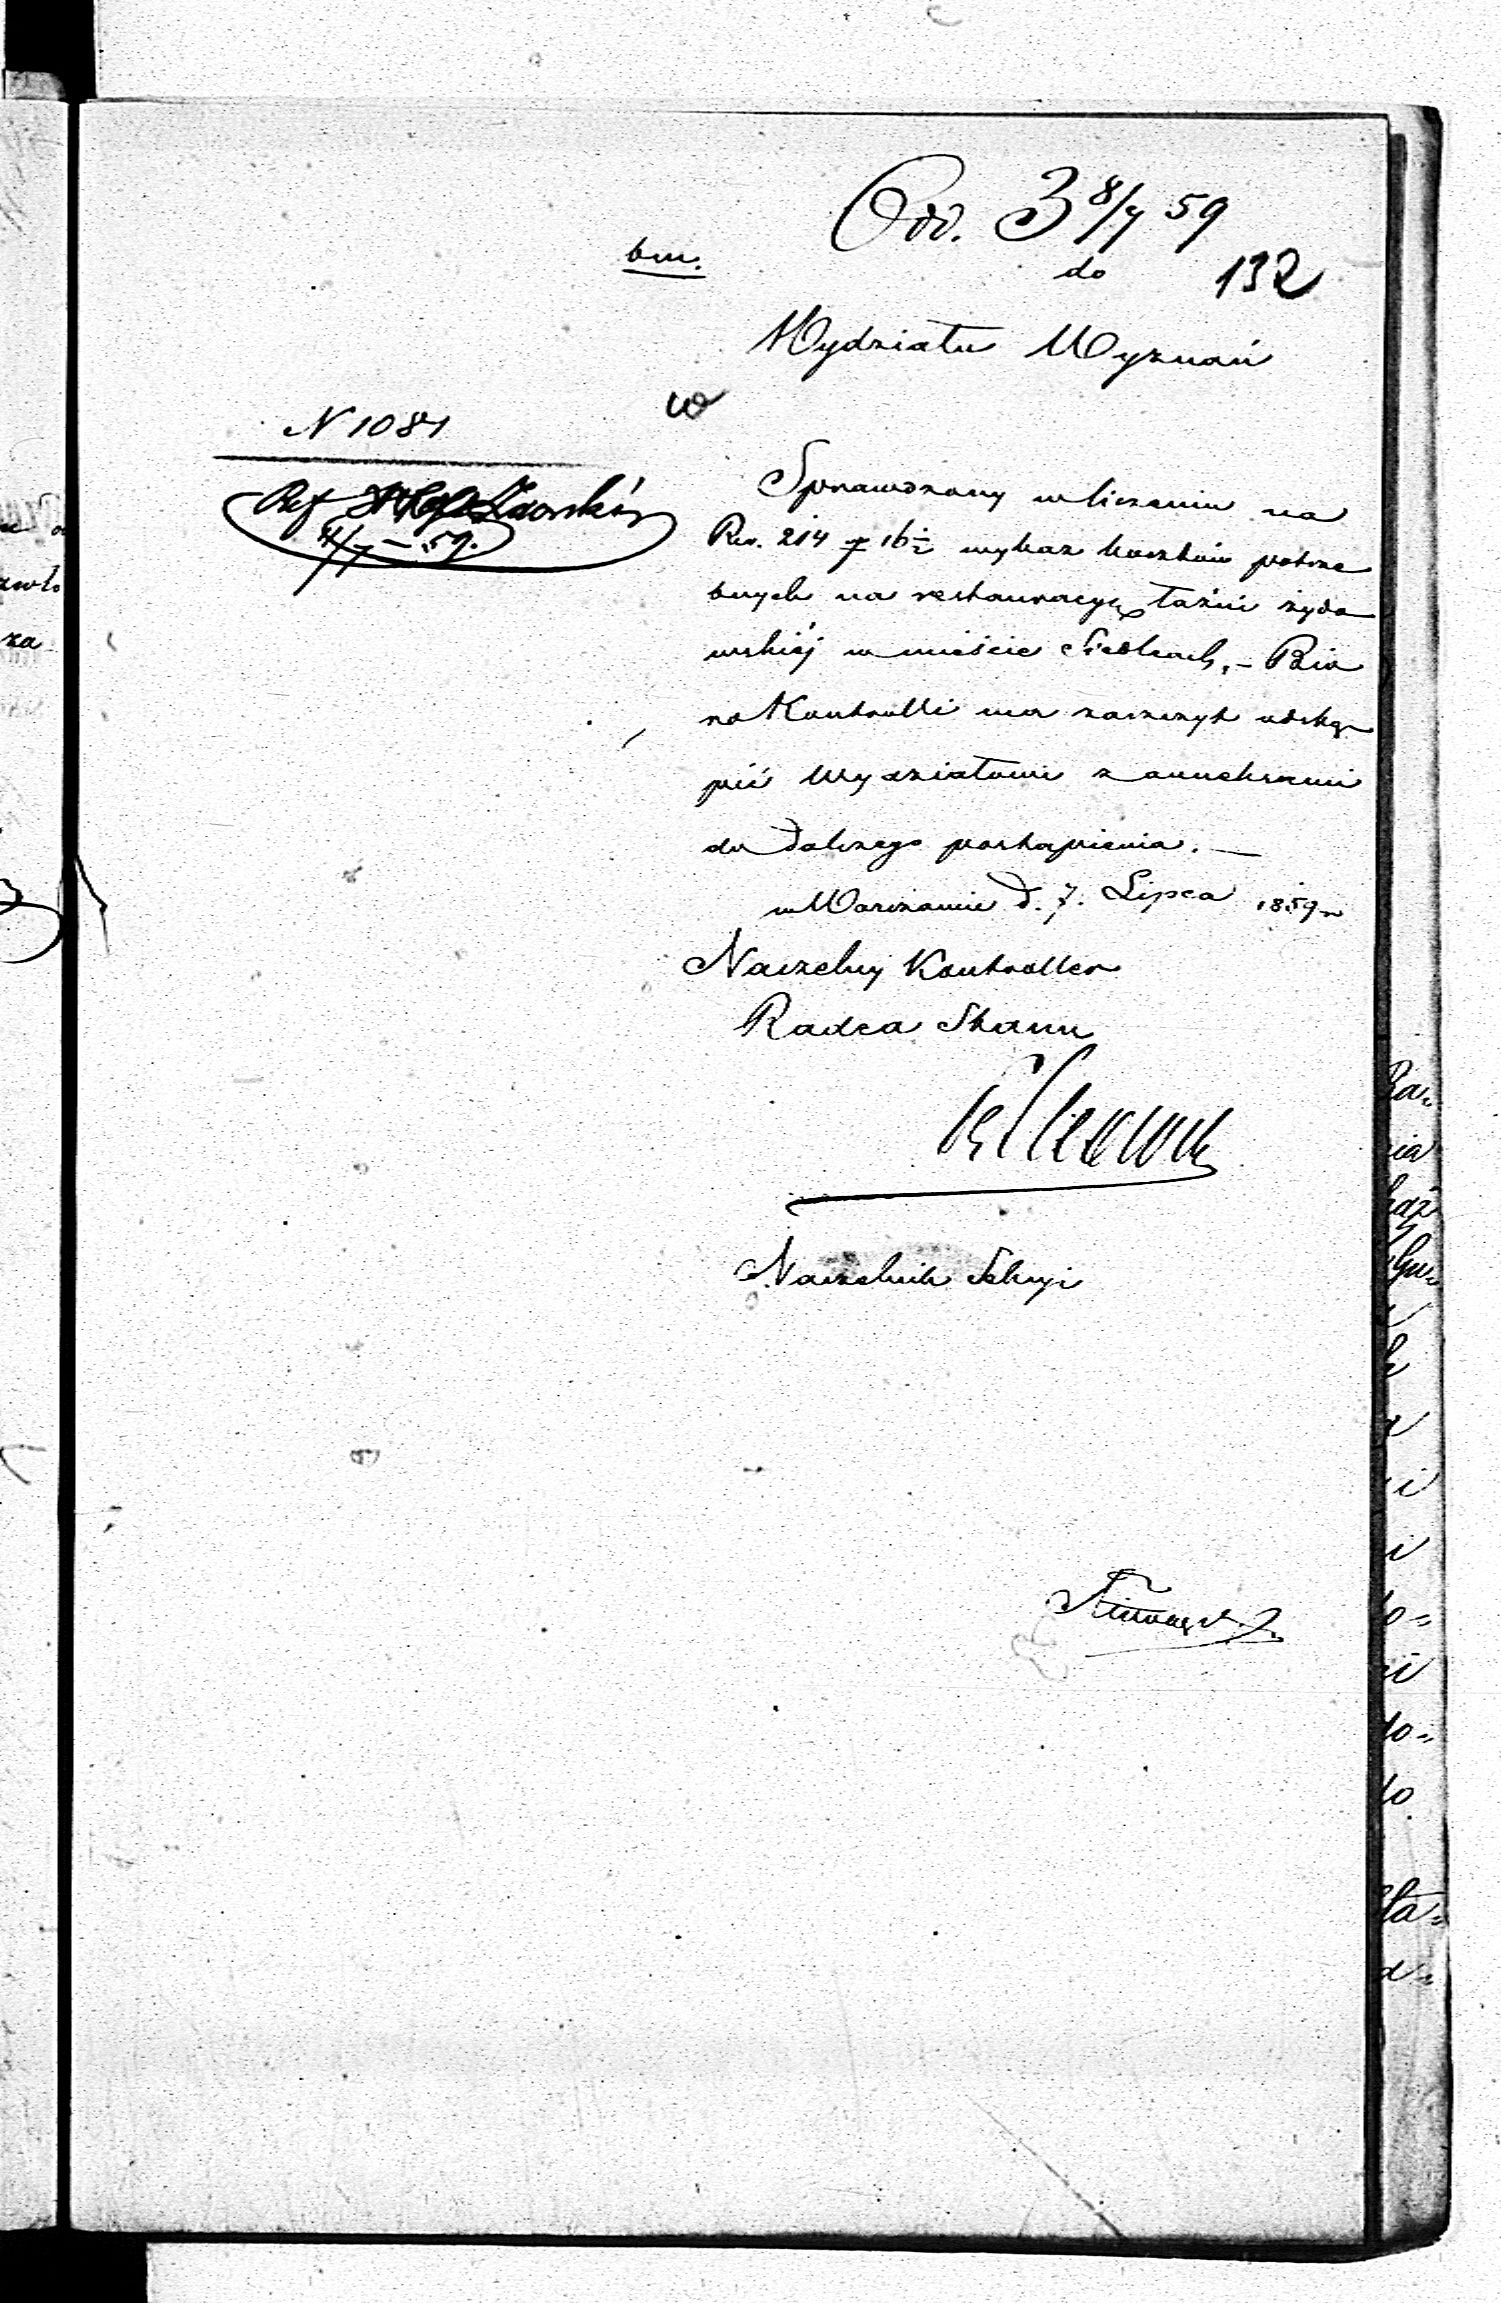 Odd. 3 8/7 59
bm.
do 132
Wydziału Wyznań
w
N 1081
Ref
11/7 – 59.
Sprawdzony w liczeniu na
Rs. 214 k 16 1/2 wykaz kosztów potrze
bnych na restauracyę łaźni żydo
wskiéj w mieście Siedlcach, – Biu
ro Kontrolli ma zaszczyt odstą
pić Wydziałowi z annexami
do dalszego postąpienia. —
w Warszawie d. 7. Lipca 1859 r
Naczelny Kontroller
Radca Stanu
Naczelnik Sekcyi